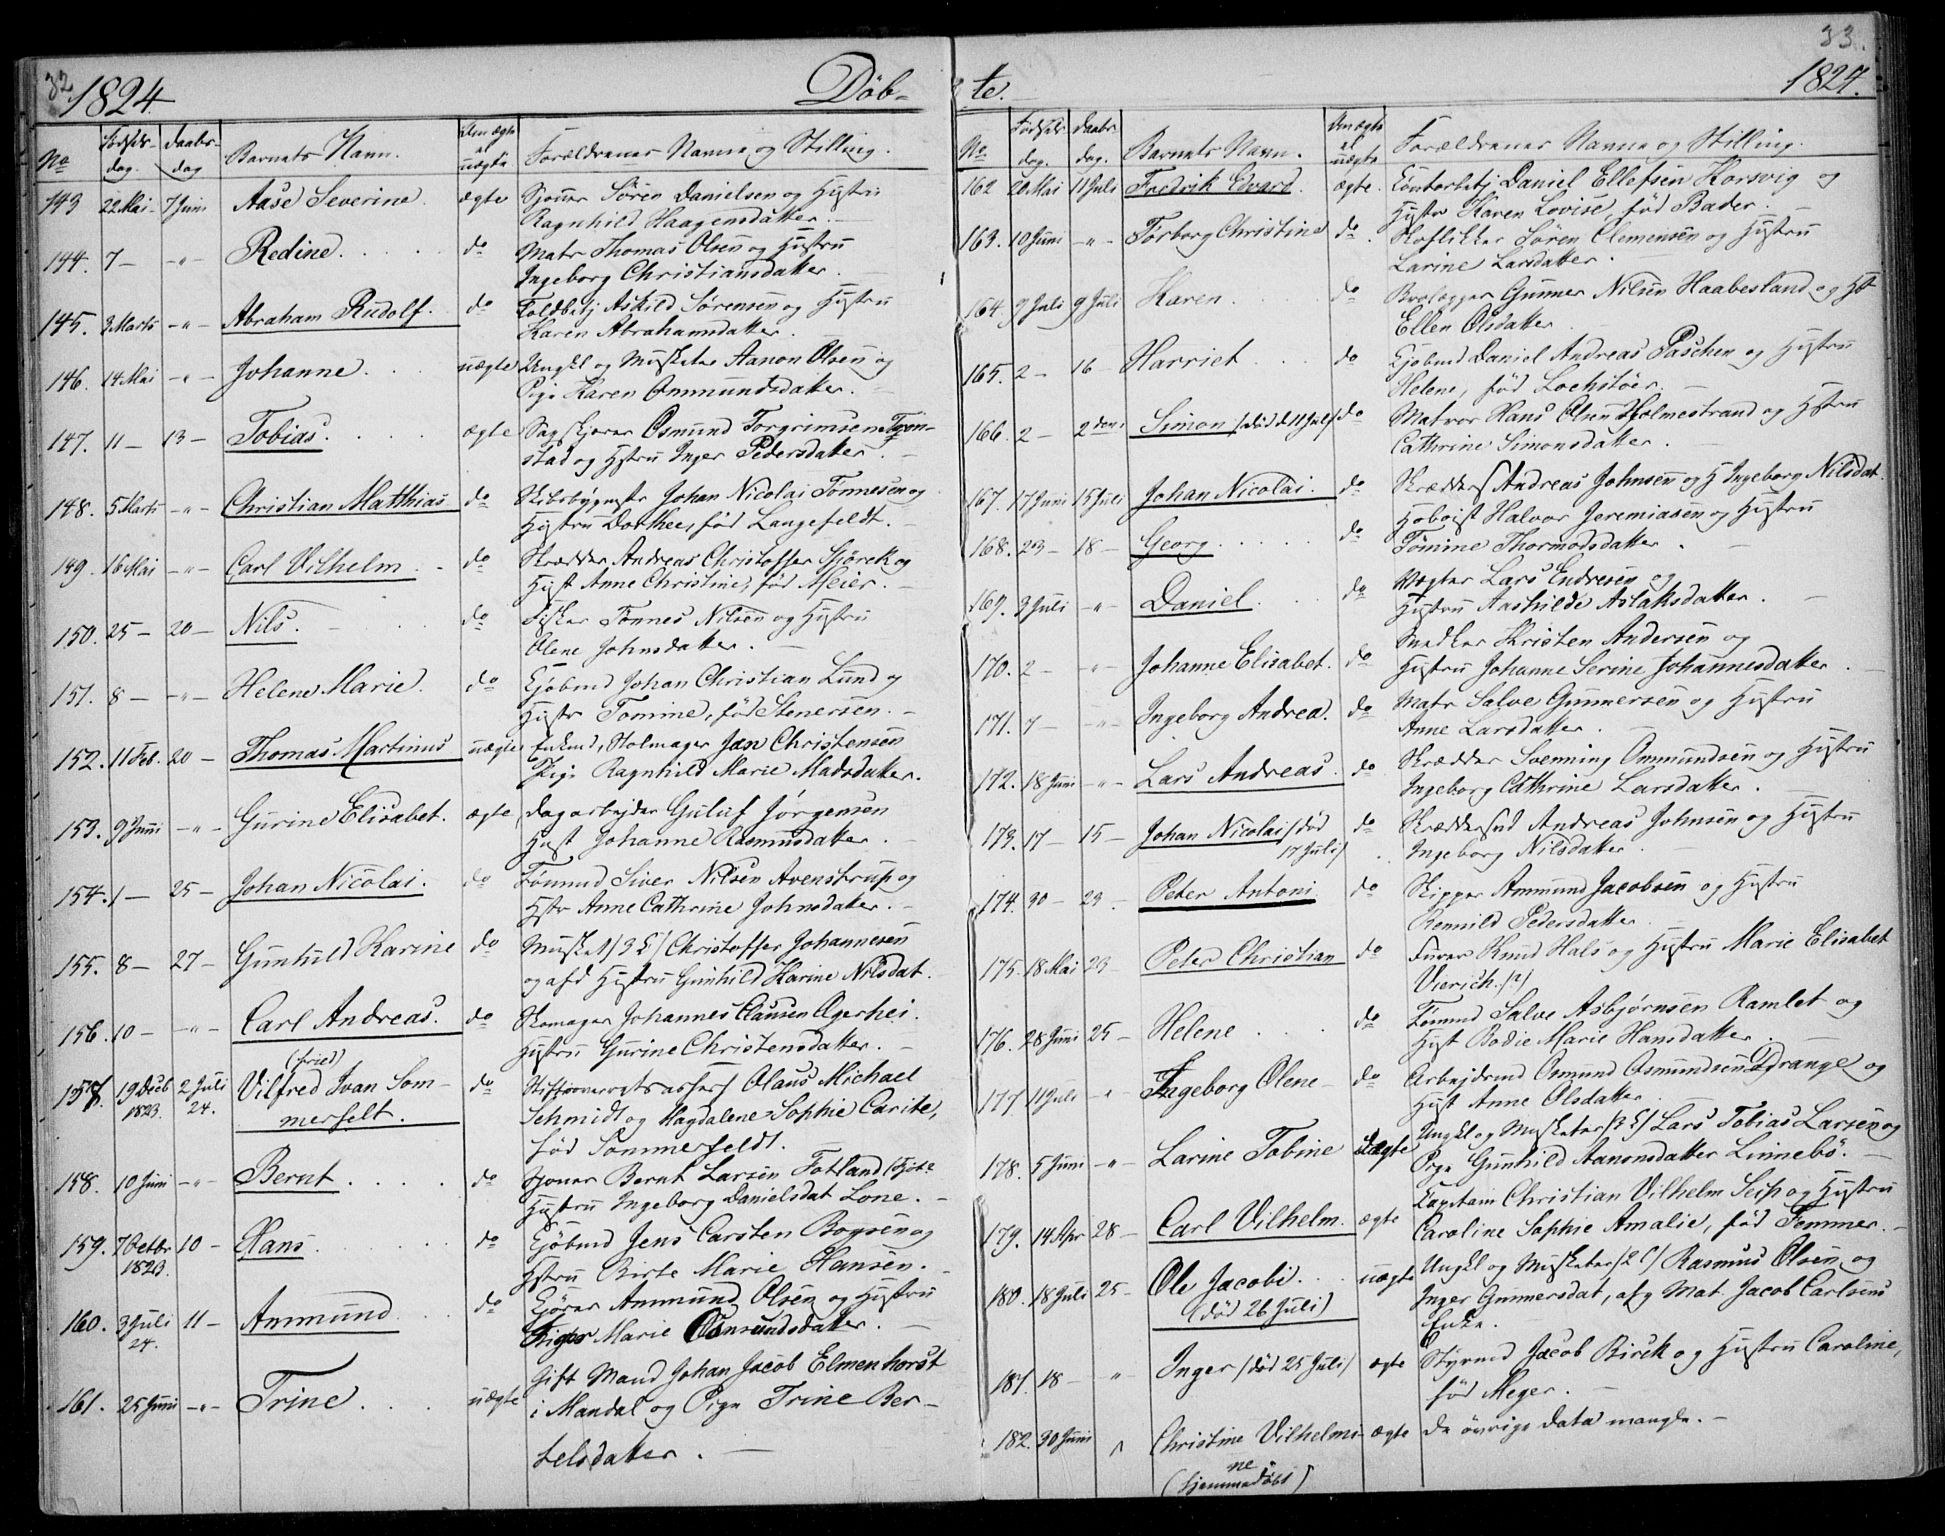 32.
1824.
Döb-
No
Fødsels-dag.
Daabs-dag
Barnets Navn.
Om ægte el uægte
Forældrenes Navne og Stilling.
143 22 Mai - 7 Juni Aase Severine. ægte Sjouer Sören Danielsen og Hustru
Ragnhild Haagensdatter.
144. 7 - - " - Redine. do Matr Thomas Olsen og Hustru
Ingeborg Christiansdatter.
145. 3 Marts - " - Abraham Rudolf. do Toldbetj Askild Sørensen og Hustru
Karen Abrahamsdatter.
146. 14 Mai - " - Johanne. uægte Ungkl og Musketer Aanon Olsen og
Pige Karen Ommundsdatter.
147. 11 - 13 - Tobias. ægte Sagskjærer Osmund Torgrimsen
stad og Hstru Inger Pedersdatter.
148. 5 Marts - " - Christian Matthias do Skibsbygmstr Johan Nicolai Tönnesen og
Hustru Dorthee, fød Langefeldt.
149. 16 Mai - " - Carl Vilhelm. do Skrædder Andreas Christoffer Björck og
Hust Anne Christine, fød Meier.
150. 25 - 20 - Nils. do Fisker Tönnes Nilsen og Hustru
Olene Johnsdatter.
151. 8 - - " - Helene Marie. do Kjøbmd Johan Christian Lund og
Hustr Tomine, fød Stenersen.
152. 11 Feb. 20 - Thomas Martinus uægte Enkemd, Stolmager Jan Christensen
Pige Ragnhild Marie Madsdatter.
153. 9 Juni - " - Gurine Elisabet. ægte Dagarbejder Guluf Jörgensen
Hust Johanne Rasmusdatter.
154. 1 - 25 - Johan Nicolai. do Tömmd Siver Nilsen Avenstrup og
Hstr Anne Cathrine Johnsdatter.
155. 8 - 27 - Gunhild Karine do Musket /3 C/ Christoffer Johannesen
og afd Hustru Gunhild Karine Nilsdat.
156. 10 - - " - Carl Andreas. do Skomager Johannes Clausen Agerhei.
Hustru Gurine Christensdatter.
(fried)
157. 19 Decb 1823. 2 Juli 24. Vilfred Ivan Som- do Stiftsoverretsassess Olaus Michael
merfelt. Schmidt og Magdalene Sophie Carite,
fød Sommerfeldt.
158. 10 Juni - " - Bernt. do Sjouer Bernt Larsen Fotland
Hustru Ingeborg Danielsdat Lone.
159. 7 Octbr 1823. 10 - Hans. do Kjøbmd Jens Carsten Boysen og
Hstru Birte Marie Hansen.
160. 3 Juli 24. 11 - Ammund. do Kjörer Ammund Olsen og Hustru
Marie Osmundsdatter.
161. 25 Juni - " - Trine. uægte Gift Mand Johan Jacob Elmenhorst
i Mandal og Pige Trine Ber-
telsdatter.
33.
te.
1824.
No
Fødsels dag.
Daabs dag.
Barnets Navn.
Om ægte el uægte
Forældrenes Navne og Stilling.
162 20 Mai 11 Juli Fredrik Edvard. ægte. Contorbetj Daniel Ellefsen Korsvig og
Hustr Karen Lovise, fød Bader.
163. 10 Juni - " - Torborg Christine do. Skoflikker Sören Clemensen og Hustru
Larine Larsdatter.
164. 9 Juli 9 Juli Karen. do Brolægger Gunner Nilsen Haabesland og Hst
Ellen Olsdatter
165. 2 - 16 - Harriet do Kjøbmd Daniel Andreas Paschen og Hustru
Helene, fød Lochstöer.
166. 2 - 2 den Simon /død d 11 Juli/ do Matros Hans Olsen Holmestrand og Hstru
Cathrine Simonsdatter.
167. 17 Juni 15 Juli Johan Nicolai. do Skrædders Andreas Johnsen og H Ingeborg Nilsdat.
168. 23 - 18 - Georg. do Hoboist Halvor Jeremiasen og Hustru
Tomine Thormodsdatter.
169. 3 Juli - " - Daniel. do Vægter Lars Endresen og
Hustru Aashilde Aslaksdatter.
170. 2 - - " - Johanne Elisabet. do Snedker Kristen Andersen og
Hustru Johanne Serine Johannesdatter
171. 7 - - " - Ingeborg Andrea. do Matr Salve Gunnersen og Hustru
Anne Larsdatter.
172. 18 Juni - " - Lars Andreas. do Skrædder Svenning Ommundsen og Hustru
Ingeborg Cathrine Larsdatter.
173. 17 - 15 - Johan Nicolai /død do Skræddersvd Andreas Johnsen og Hustru
17 Juli/ Ingeborg Nilsdatter.
174. 30 - 23 - Peter Antoni do Skipper Ammund Jacobsen og Hustru
Remnild Pedersdatter
175. 18 Mai 23 Peter Christian do Furer Knud Hals og Hustru Marie Elisabet
Vierich. /2/
176. 28 Juni 25 - Helene do Tömmd Salve Asbjørnsen Ramlet og
Hust Bodie Marie Hansdatter.
177 11 Juli " Ingeborg Olene - do Arbejdsmd Osmund Osmundsen Drange og
Hust Anne Olsdatter
178. 5 Juni - " - Larine Tobine uægte Ungkl og Musketer /2 C/ Lars Tobias Larsen og
Pige Gunhild Aanonsdatter Linnebö.
179. 14 Apr 28 - Carl Vilhelm. ægte Kapitain Christian Vilhelm Seip og Hustru
Caroline Sophie Amalie, fød Tommer.
180. 18 Juli 25 - Ole Jacobi. uægte Ungkl og Musketer /2 C/ Rasmus Olsen og
(død 26 Juli) Inger Gunnersdat, afg Mat. Jacob Carlsens
Enke.
181. 18 - " Inger /død 25 Juli/ ægte Styrmd Jacob Birck og Hustru Caroline,
fød Meger.
182. 30 Juni " Christine Vilhelmi- ægte De övrige Data mangle.
ne
(hjemmedöbt)